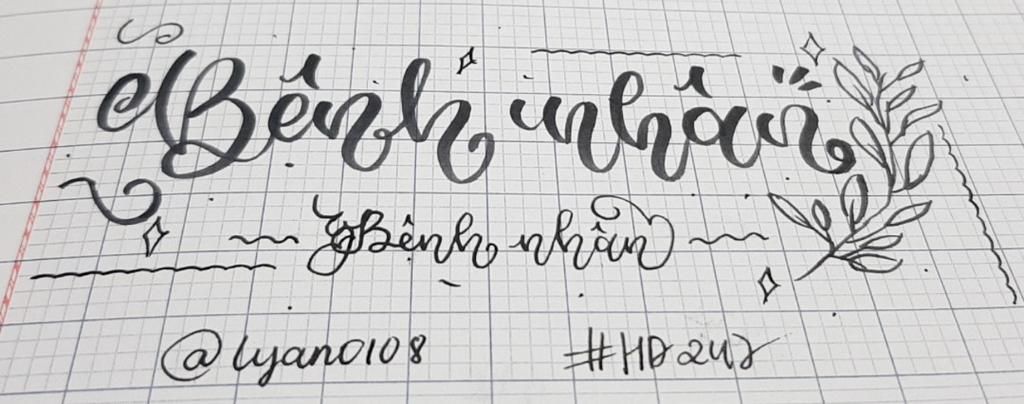 Bệnh nhân
Bệnh nhân
@lyano108 #HD242